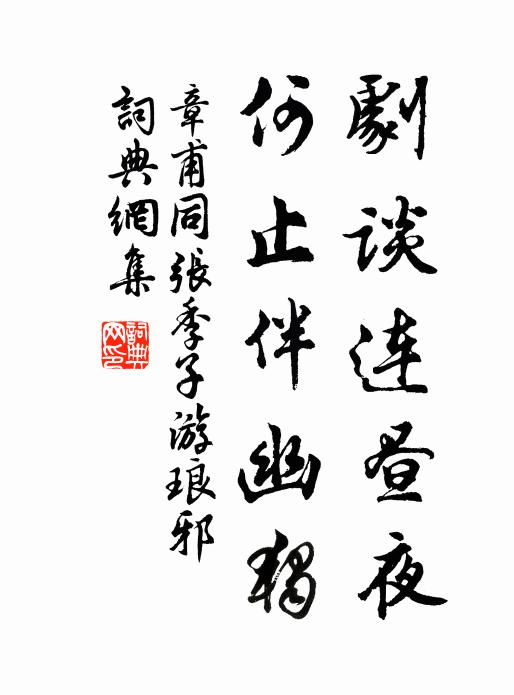 劇談連昼夜
何止伴幽獨
章甫同張季子游琅邪
詞典網集
詞典網印